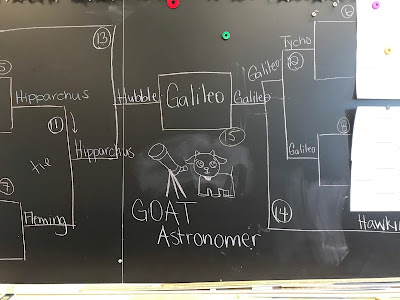 13
6
Tycho
5
Galileo
12
Hipparchus
Hubble
Galileo
Galileo
11
8
Hipparchus
15
Galileo
tie
7
Fleming
GOAT
14
Astronomer